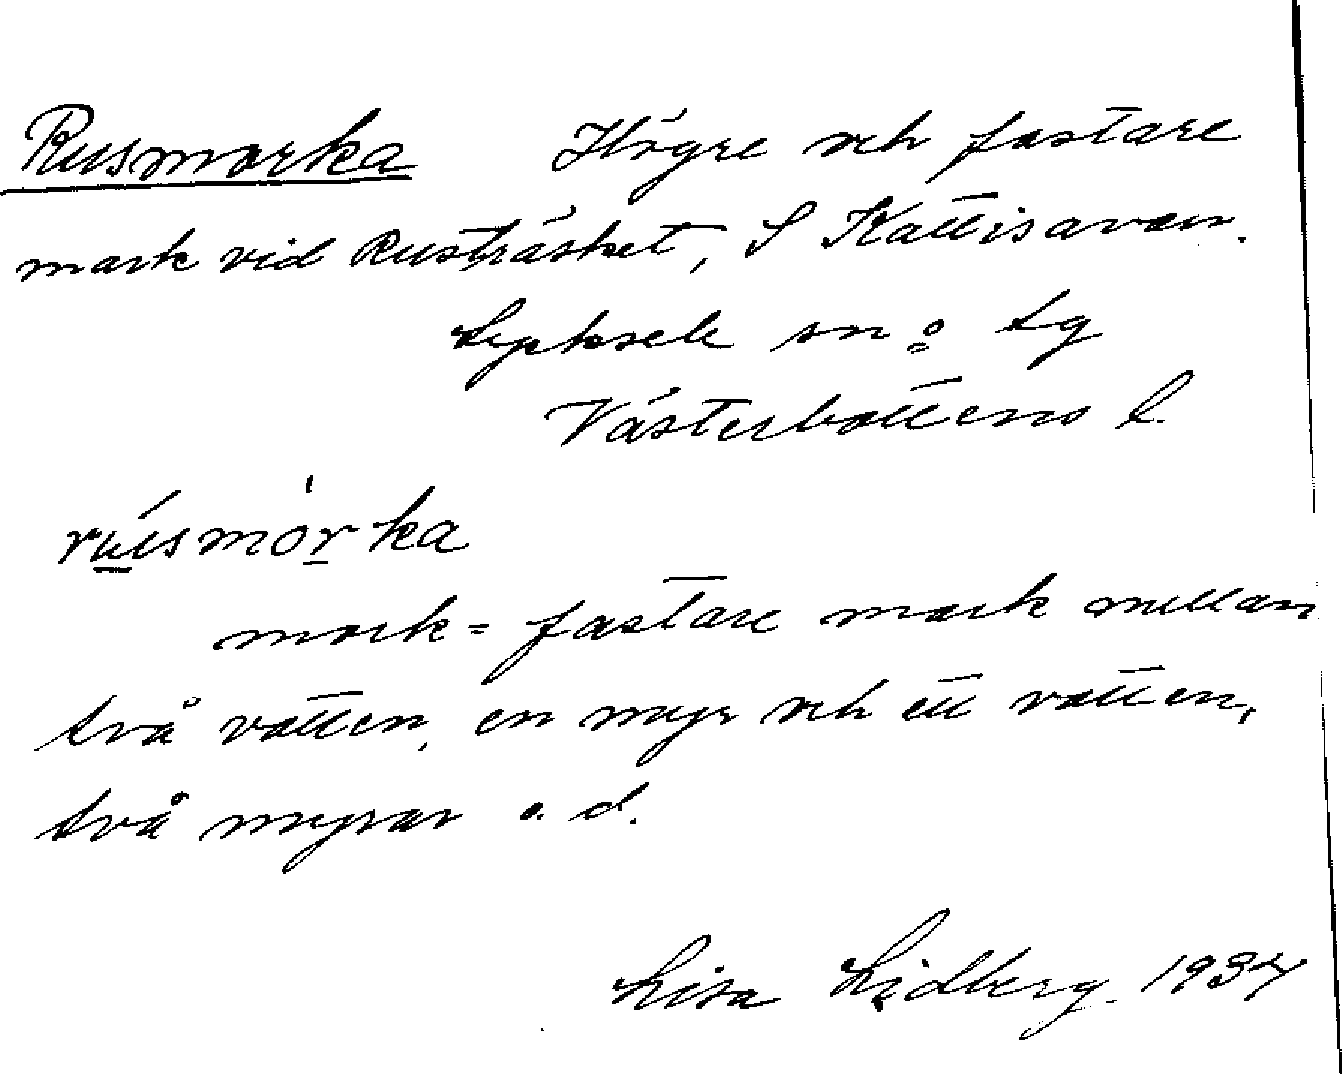 Rusmorka Högre och fastare
mark vid Rusträsket, S Kattisavan.
Lycksele sn o lg
Västerbottens l.
rusmorka
mork = fastare mark mellan
två vatten, en myr och ett vatten,
två myrar o. d.
Lisa Lidberg. 1937